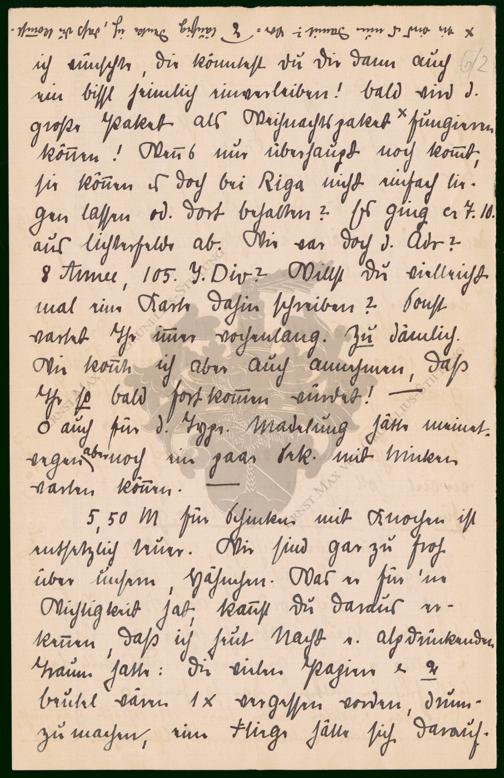 ich wünschte, die könntest du dir dann auch 6/2
ein bissl heimlich einverleiben! bald wird d.
große Paket als Weihnachtspaket x fungieren
können! Wenns nur überhaupt noch kommt,
sie können es doch bei Riga nicht einfach lie-
gen lassen od. dort behalten? Es ging ca 7. 10.
aus Lichterfelde ab. Wie war doch d. Adr?
8 Armee, 105. J. Div? Willst du vielleicht
mal eine Karte dahin schreiben? Sonst
wartet Ihr immer wochenlang. Zu dämlich.
Wie konnte ich aber auch annehmen, daß
Ihr so bald fortkommen würdet! —
O auch für d. Typs. Madelung hätte meinet-
wegen aber noch ein paar Sek. mit Winken
warten können. —
5,50 M für Schinken mit Knochen ist
entsetzlich teuer. Wir sind gar zu froh
über unsern, Hähnchen. Was er für 'ne
Wichtigkeit hat, kannst du daraus er-
kennen, daß ich heut Nacht e. alpdrückenden
Traum hatte: die vielen Papier
beutel wären 1x vergessen worden, drum-
zumachen, eine Fliege hätte sich darauf-